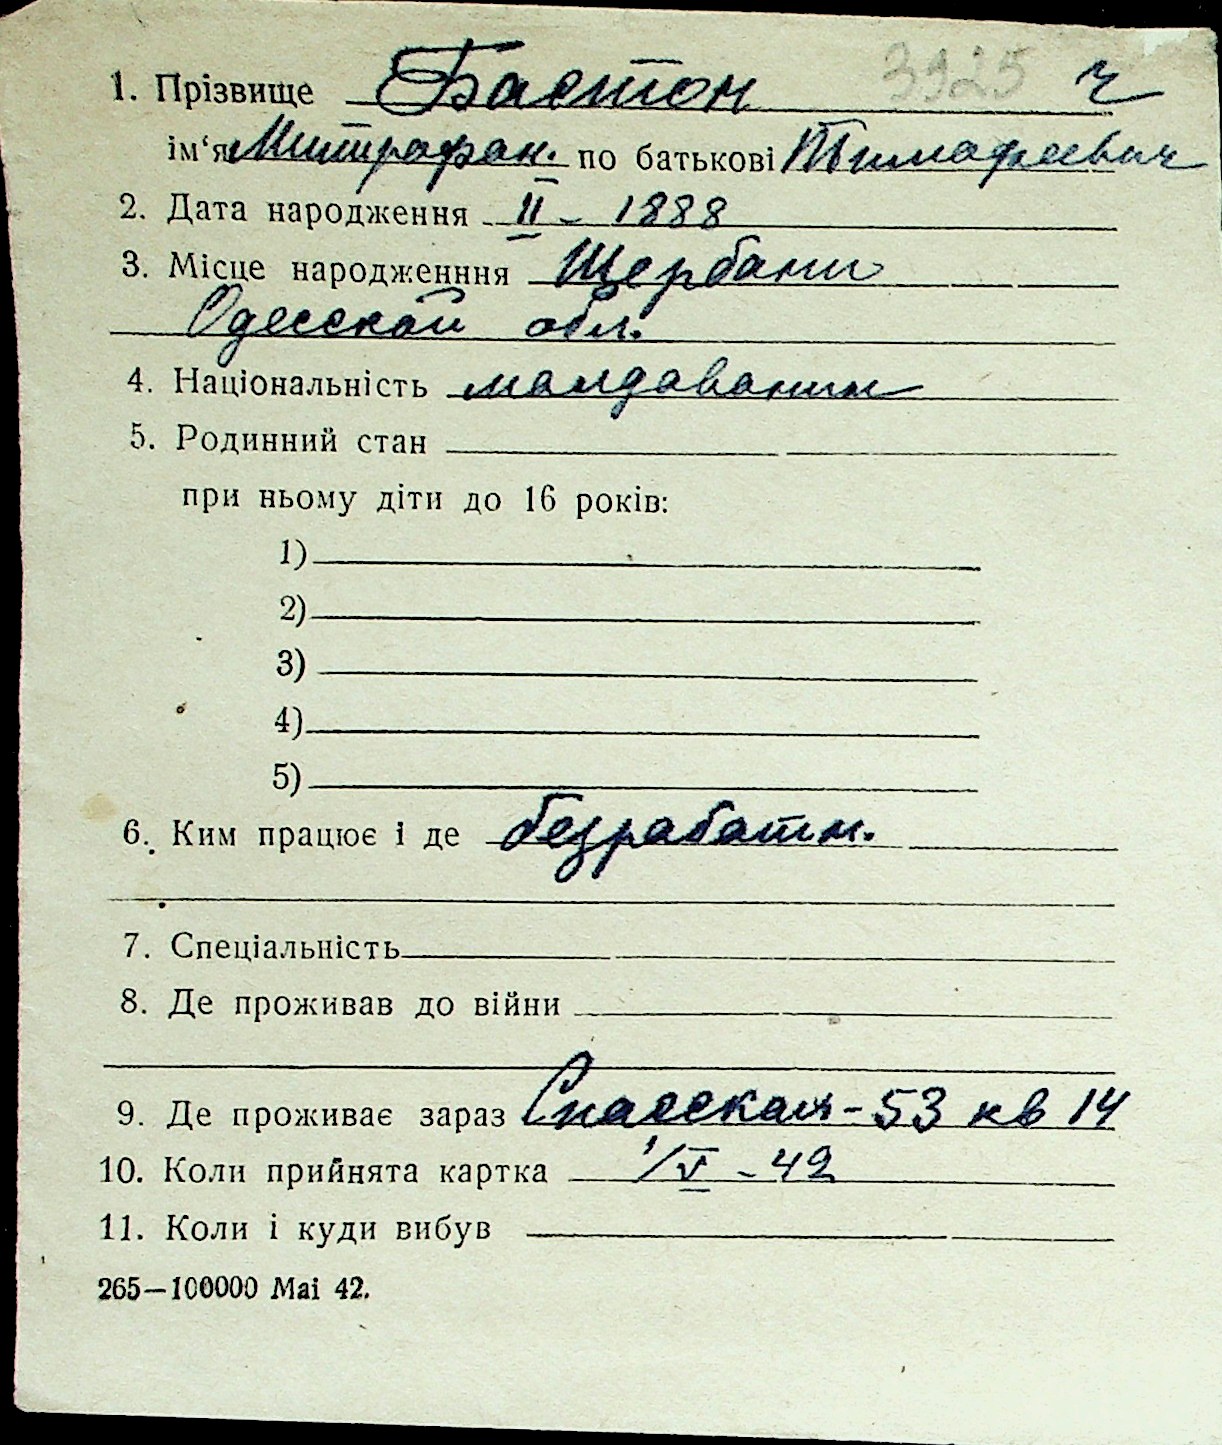 1. Прізвище Бастон 3925 ч
ім‘я Митрафан. по батькові Тимафеевич
2. Дата народження II - 1888
3. Місце народженння Щербани
Одесской обл.
4. Національність малдаванин
5. Родинний стан
при ньому діти до 16 років:
1)
2)
3)
4)
5)
6. Ким працює і де безработн.
7. Спеціальність
8. Де проживав до війни
9. Де проживає зараз Спасская-53 кв 14
10. Коли прийнята картка 1/V - 42
11. Коли і куди вибув
265—100000 Mai 42.